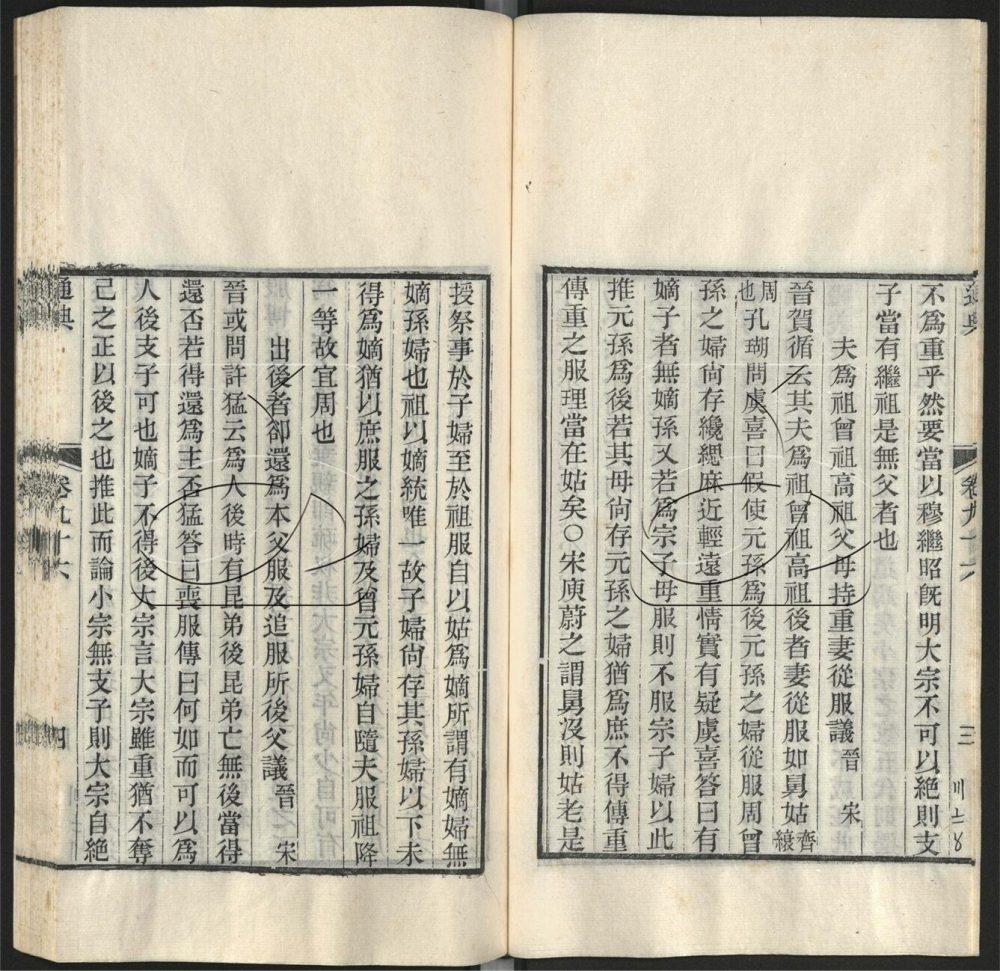 不爲重乎然要當以穆繼昭旣明大宗不可以絶則支
子當有繼祖是無父者也
夫爲祖曾祖高祖父母持重妻從服議 晉 宋
晉賀循云其夫爲祖曾祖高祖後者妻從服如舅姑齊縗
周也孔瑚問虞喜曰假使元孫爲後元孫之婦從服周曾
孫之婦尙存纔緦麻近輕遠重情實有疑虞喜答曰有
嫡子者無嫡孫又若爲宗子母服則不服宗子婦以此
推元孫爲後若其母尙存元孫之婦猶爲庶不得傳重
傳重之服理當在姑矣○宋庾蔚之謂舅沒則姑老是
授祭事於子婦至於祖服自以姑爲嫡所謂有嫡婦無
嫡孫婦也祖以嫡統唯一故子婦尙存其孫婦以下未
得爲嫡猶以庶服之孫婦及曾元孫婦自隨夫服祖降
一等故宜周也
出後者卻還爲本父服及追服所後父議 晉 宋
晉或問許猛云爲人後時有昆弟後昆弟亡無後當得
還否若得還爲主否猛答曰喪服傳曰何如而可以爲
人後支子可也嫡子不得後大宗言大宗雖重猶不奪
己之正以後之也推此而論小宗無支子則大宗自絶
通典
卷九十六
三
通典
卷九十六
四